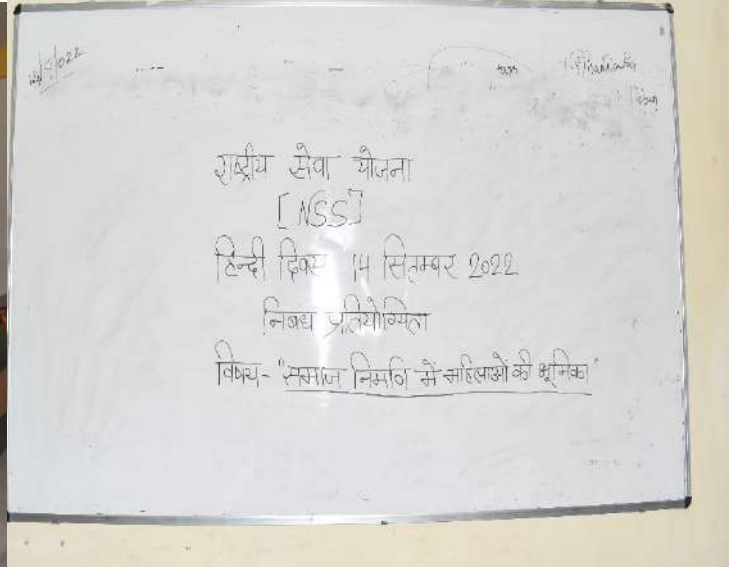 राष्ट्रीय सेवा योजना
[NSS]
हिन्दी दिवस 14 सितम्बर 2022
निबंध प्रतियोगिता
विषय- "समाज निर्माण में महिलाओं की भूमिका"